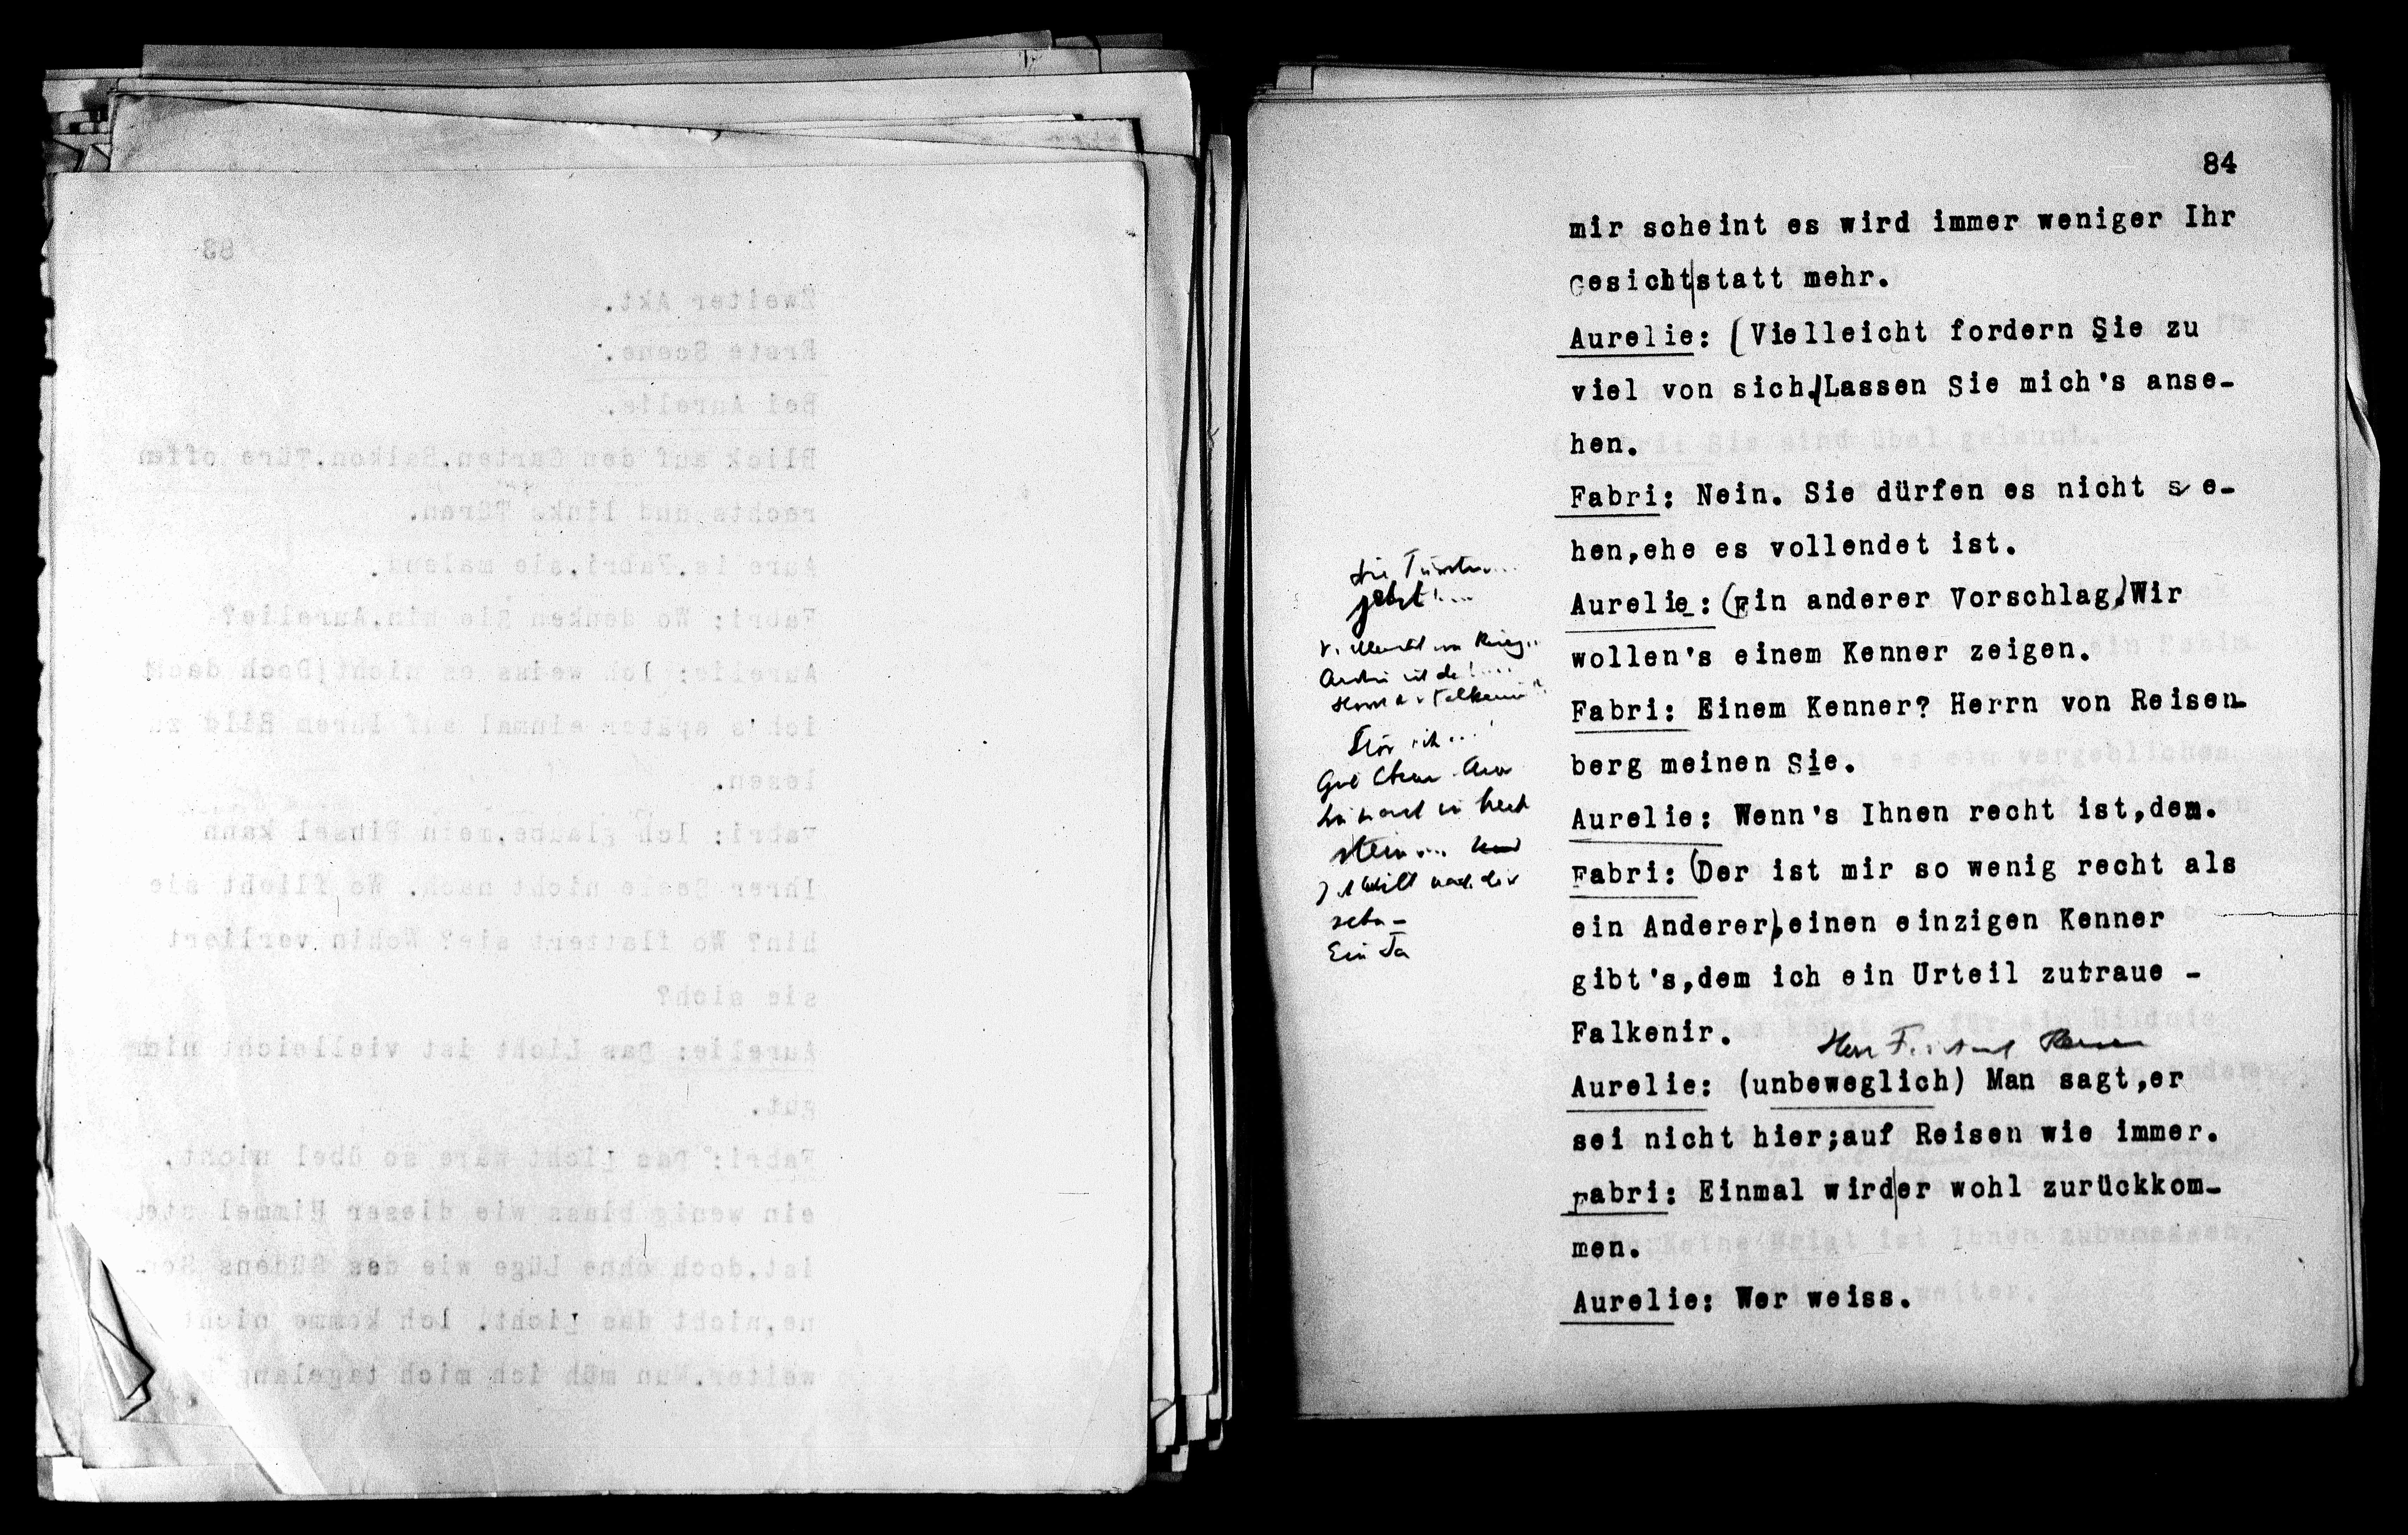 84
mir scheint es wird immer weniger Ihr
Gesicht|statt mehr.
Aurelie: (Vielleicht fordern Sie zu
viel von sich.)Lassen Sie mich's anse-
hen.
Fabri: Nein. Sie dürfen es nicht se-
hen,ehe es vollendet ist.
Aurelie: (Ein anderer Vorschlag.)Wir
wollen's einem Kenner zeigen.
Fabri: Einem Kenner? Herrn von Reisen-
berg meinen Sie.
Aurelie: Wenn's Ihnen recht ist,dem.
Fabri: (Der ist mir so wenig recht als
ein Anderer),einen einzigen Kenner
gibt's,dem ich ein Urteil zutraue -
Falkenir.
Herr
Aurelie: (unbeweglich) Man sagt,er
sei nicht hier;auf Reisen wie immer.
Fabri: Einmal wird|er wohl zurückkom-
men.
Aurelie: Wer weiss.
jetzt!...
Ein Ja
83
Zweiter Akt.
Erste Scene.
Bei Aurelie.
Blick auf den Garten.Balkon.Türe offen
rechts und links Türen.
Aurelie.Fabri,sie malend.
Fabri: Wo denken Sie hin,Aurelie?
Aurelie: Ich weiss es nicht(Doch dacht
ich's später einmal auf Ihrem Bild zu
lesen.
Fabri: Ich glaube,mein Pinsel kann
Ihrer Seele nicht nach. Wo flieht sie
hin? Wo flattert sie? Wohin verliert
sie sich?
Aurelie: Das Licht ist vielleicht nicht
gut.
Fabri: Das Licht wäre so übel nicht,
ein wenig blass wie dieser Himmel stets
ist,doch ohne Lüge wie des Südens Son-
ne,nicht das Licht. Ich komme nicht
weiter.Nun müh ich mich tagelang